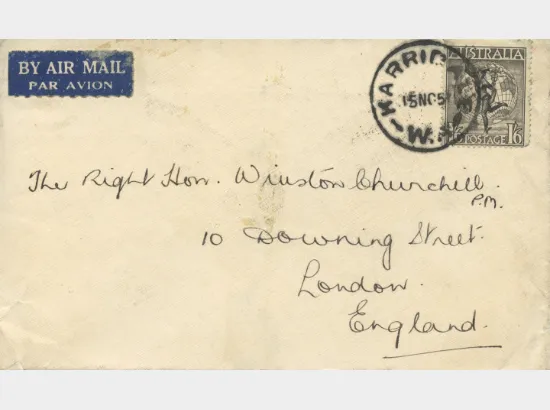 BY AIR MAIL
PAR AVION
15 NO 5
W.A.
AUSTRALIA
POSTAGE 1/6
The Right Hon. Winston Churchill.
P.M.
10 Downing Street.
London.
England.